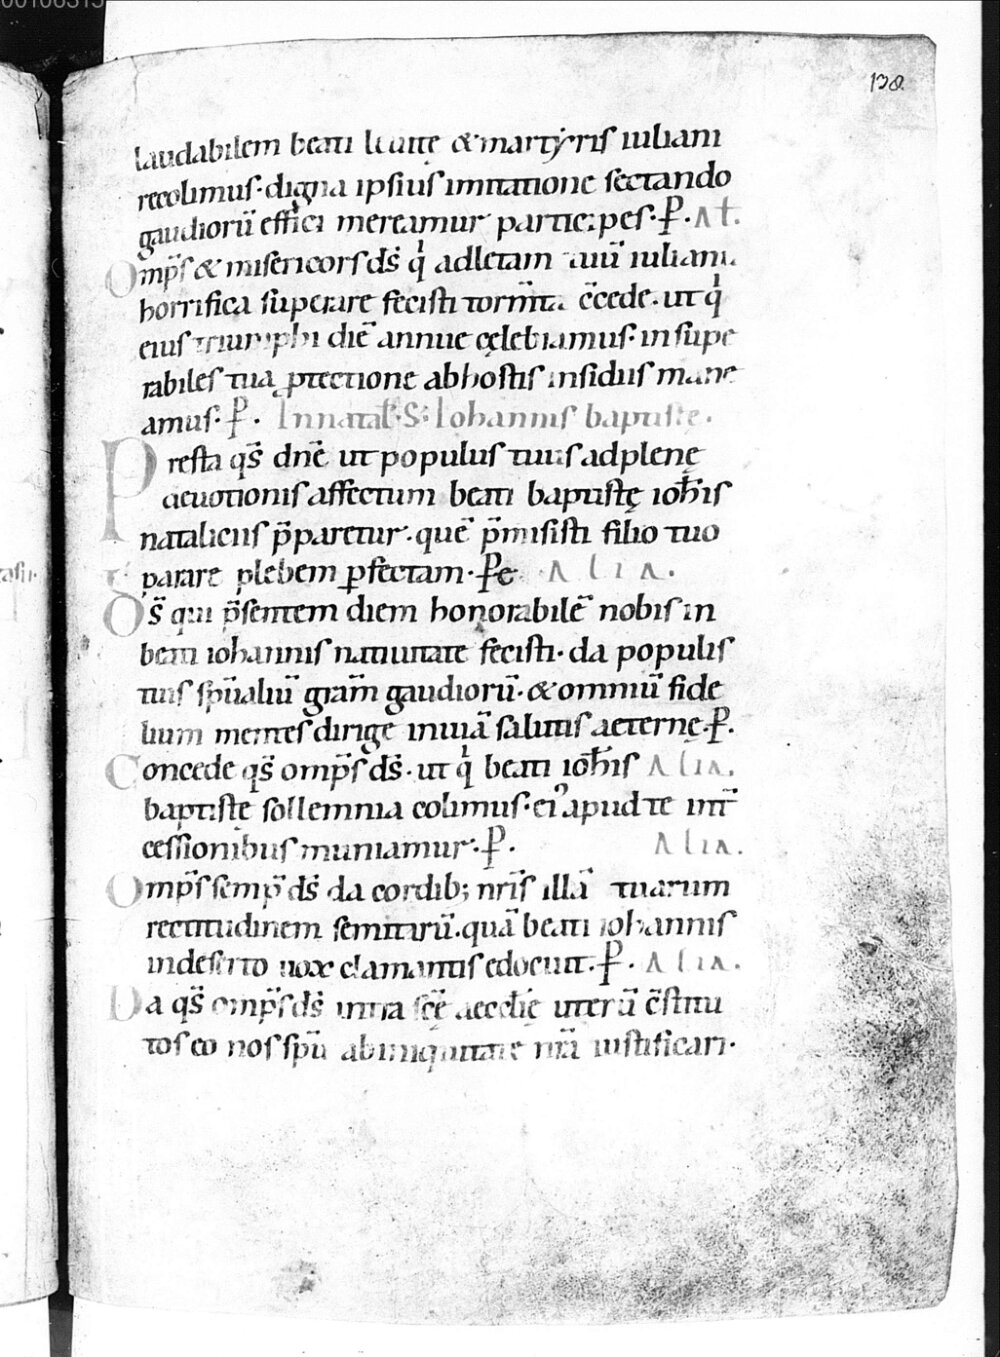 00108315
138
laudabilem beati leuite & martyris iuliani
recolimus· digna ipsius imitatione sectando
gaudiorū effici mereamur participes· P̵· At̄.
Omp̄s & misericors ds̄ qi adletam tuū iuliani
horrifica superare fecisti torm̄ta c̄cede· ut qi
eius triumphi diē annue cęlebramus· insupe
rabiles tua ꝓtectione abhostis insidiis mane
amus· P̵· In natal̄· S· Iohannis baptiste.
Presta qs̄ dnē ut populus tuus adplenę
deuotionis affectum beati baptistę ioħis
nataliciis p̄paretur· quē p̄misisti filio tuo
parare plebem ꝑfectam· P̵e· Alia.
Ds̄ qui p̄sentem diem honorabilē nobis in
beati iohannis natiuitate fecisti· da populis
tuis sp̄ualiū grām gaudiorū· & omniū fide
lium mentes dirige inuiā salutis aeternę· P̵.
Concede qs̄ omp̄s ds̄· ut qi beati ioħis Alia.
baptiste sollemnia colimus· ei᾽ apud te int̄
cessionibus muniamur· P̵· Alia.
Omp̄s semp̄ ds̄ da cordib; nr̄is illā tuarum
rectitudinem semitarū· quā beati iohannis
indeserto uox clamantis edocuit· P̵· Alia.
Da qs̄ omp̄s ds̄ intra scē aeccl̄ię uterū c̄stitu
tos eo nos sp̄u abiniquitate nr̄a iustificari·